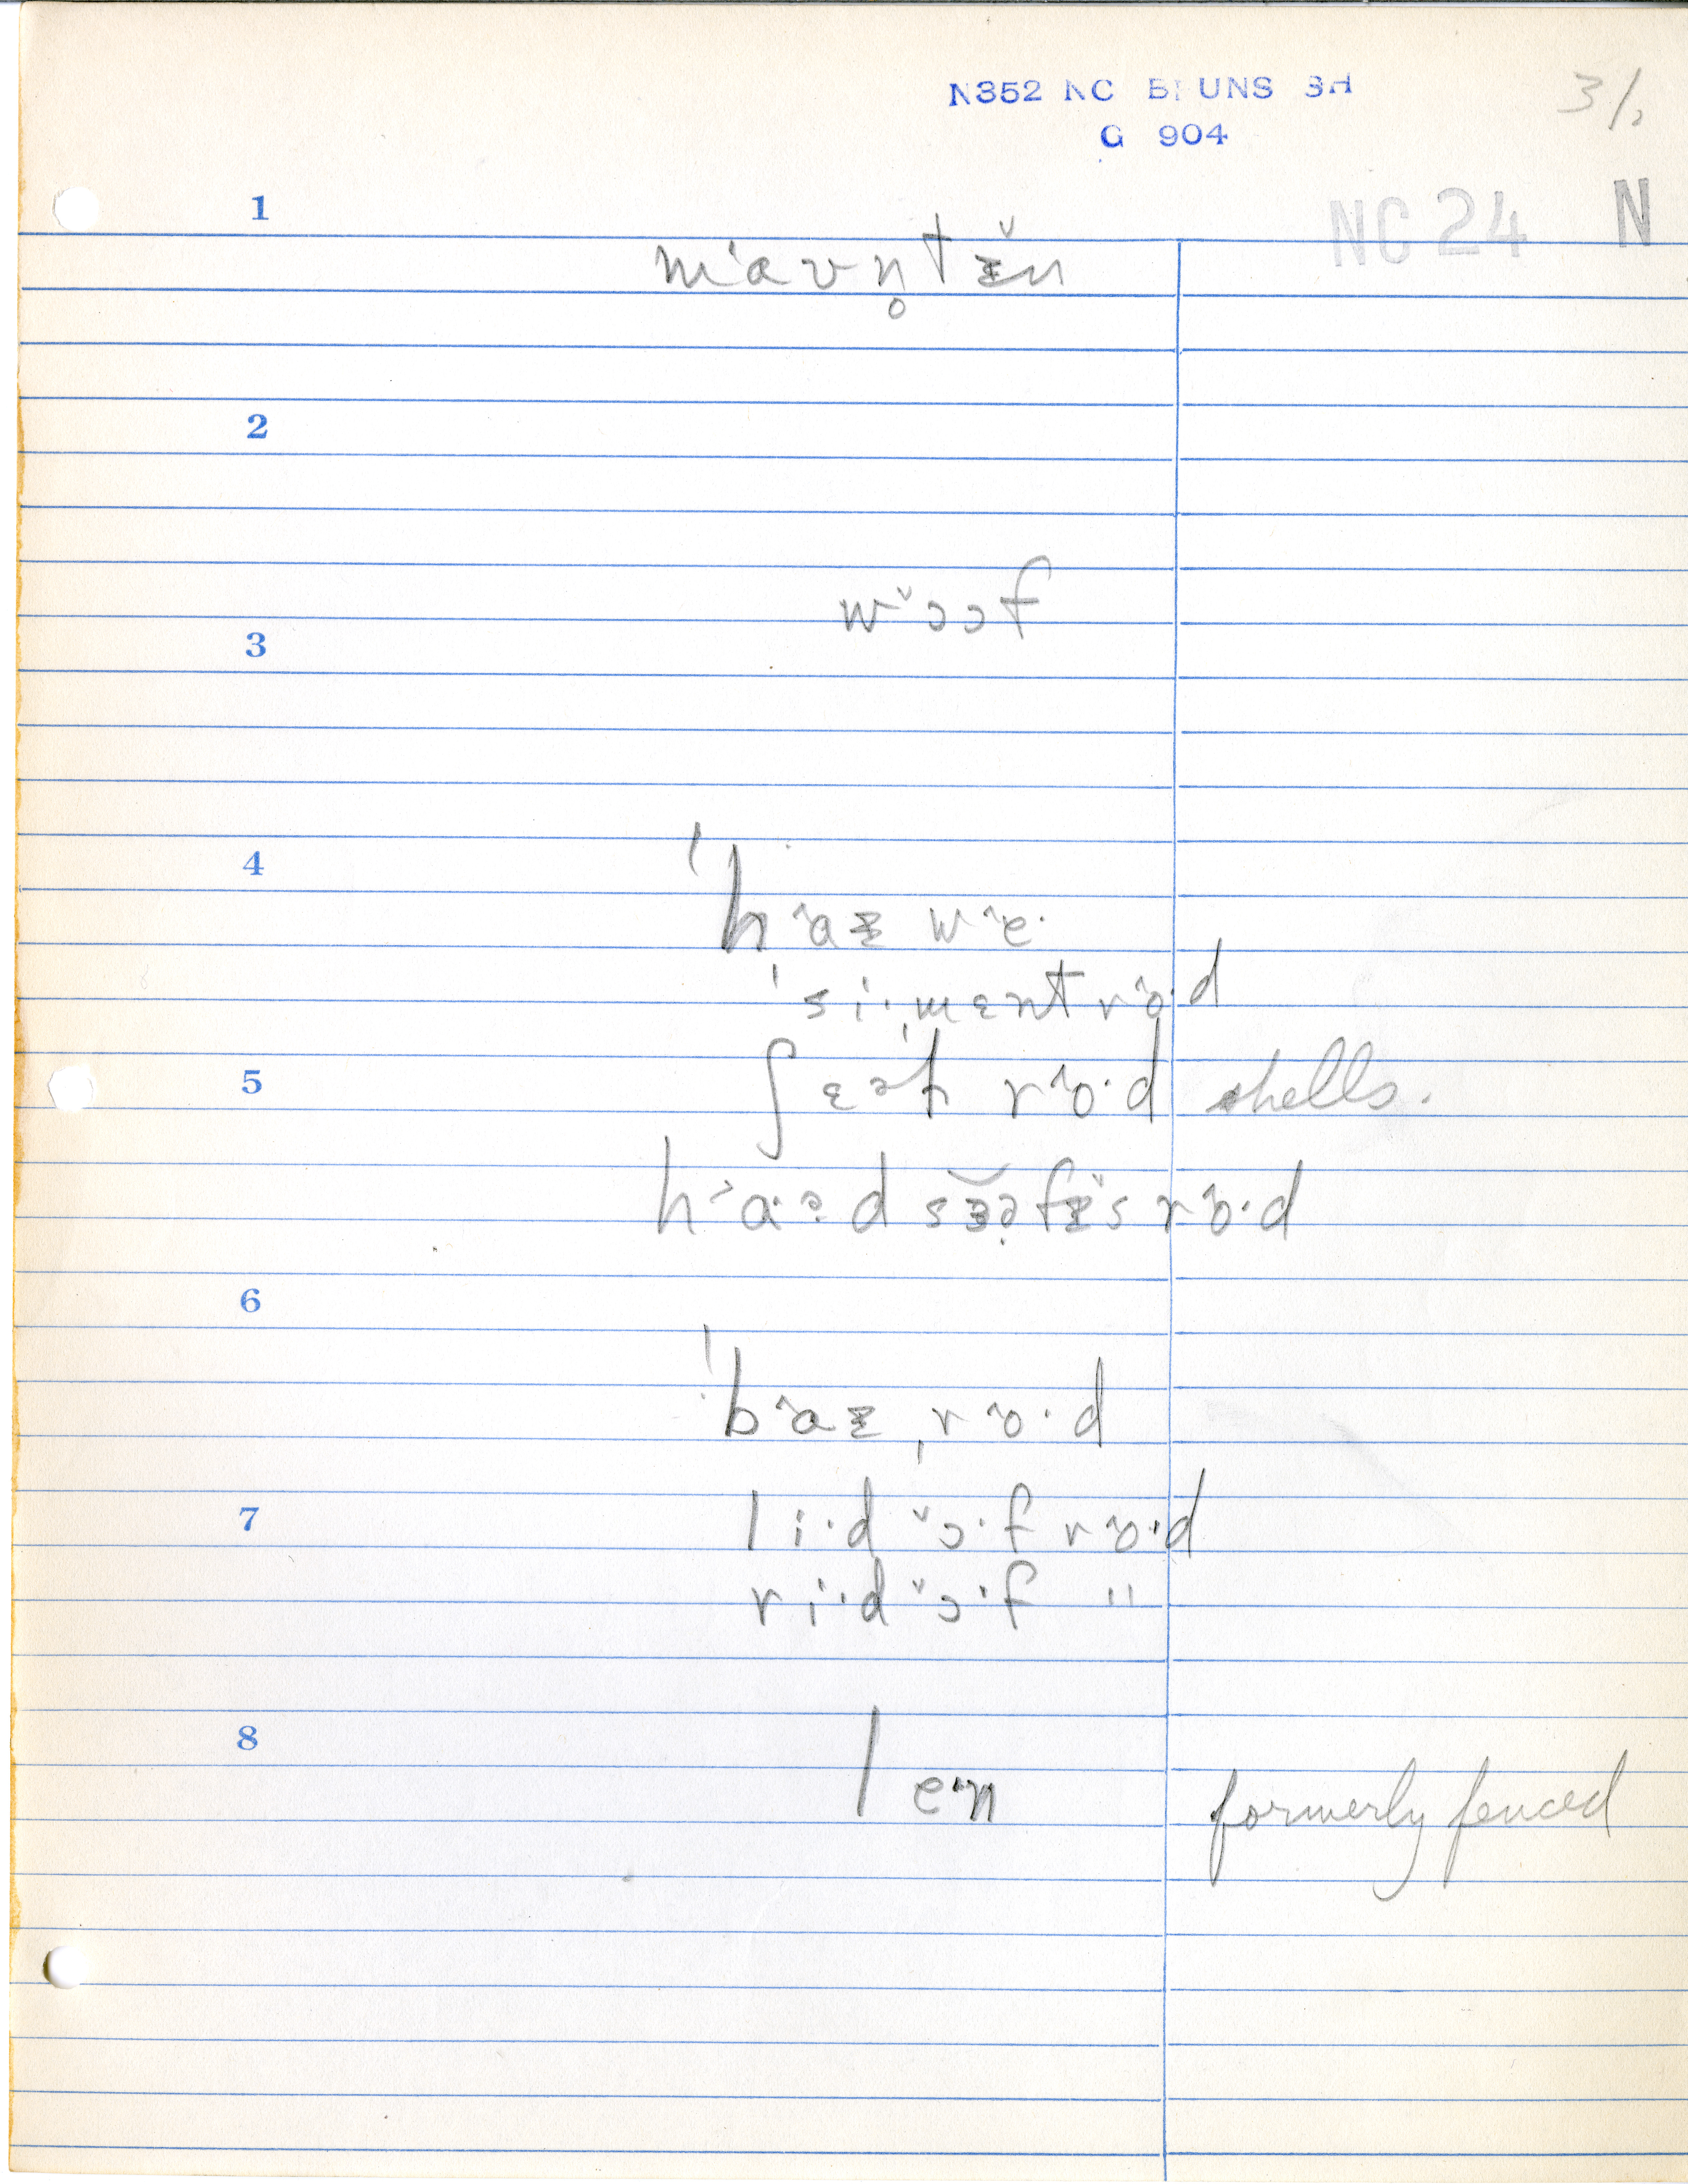 N352 NC B UNS 3H
G 904
3/2
NC 24 N
1
m'aʊn̥tᵻ̆n
2
w˅ɔɔf
3
4
ˈh^aᵻ w^e·
ˈsi·ˌmɛntr^o·d
5
ʃɛəɫ r^o·d shells.
h˃a·ə d sɜ̆əfᵻ˅s r^o·d
6
ˈb^aᵻ ˌr^o·d
7
li·d ˅ɔ·f r^o·d
ri·d ˅ɔ·f "
8
le·n formerly fenced